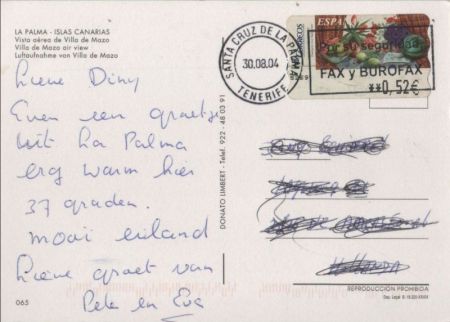 LA PALMA - ISLAS CANARIAS
Vista aérea de Villa de Mazo
Villa de Mazo air view
Luftaufnahme von Villa de Mazo
Lieve Diny
Even een groetje
uit La Palma
erg warm hier
37 graden.
mooi eiland
Lieve groet van
Pete en Eva
065
DONATO LIMBERT - Telef. 922 - 48 03 91
SANTA CRUZ DE LA PALMA
30.08.04
TENERIFE
ESPAÑA
CORREOS
Por su seguridad
FAX y BUROFAX
**0,52€
REPRODUCCIÓN PROHIBIDA